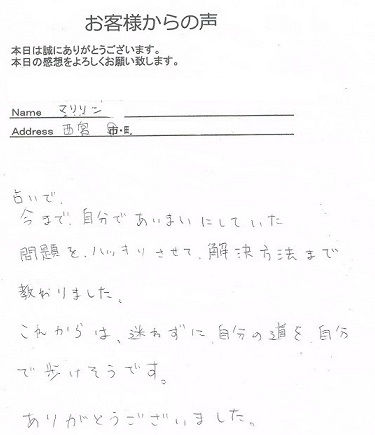 お客様からの声
本日は誠にありがとうございます。
本日の感想をよろしくお願い致します。
Name マリリン
Address 西宮 市・町
占いで、
今まで、自分であいまいにしていた
問題を、ハッキリさせて、解決方法まで
教わりました。
これからは、迷わずに、自分の道を、自分
で歩けそうです。
ありがとうございました。